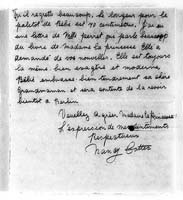 qu'il regrets beaucoup. la longeur pour le
paletot de Bébé est 70 centimètres. J'ai eu
une lettre de Mlle perret qui parle beaucoup
du livre de madame la princesse. Elle a
demandé de vos nouvelles. Elle est toujours
la même bien exagtée et moderne.
Bébé embrasse bien tendrement sa chère
Grandmaman et sera contente de la revoir
bientôt à Berlin
Veuillez Agréer Madame la princesse
L'expression de mes sentiments
respectueux
Nancy